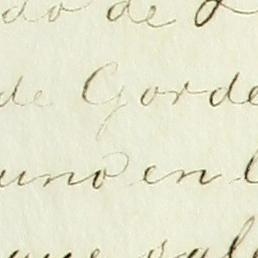 do de
de Gorde
uno en l
que sal